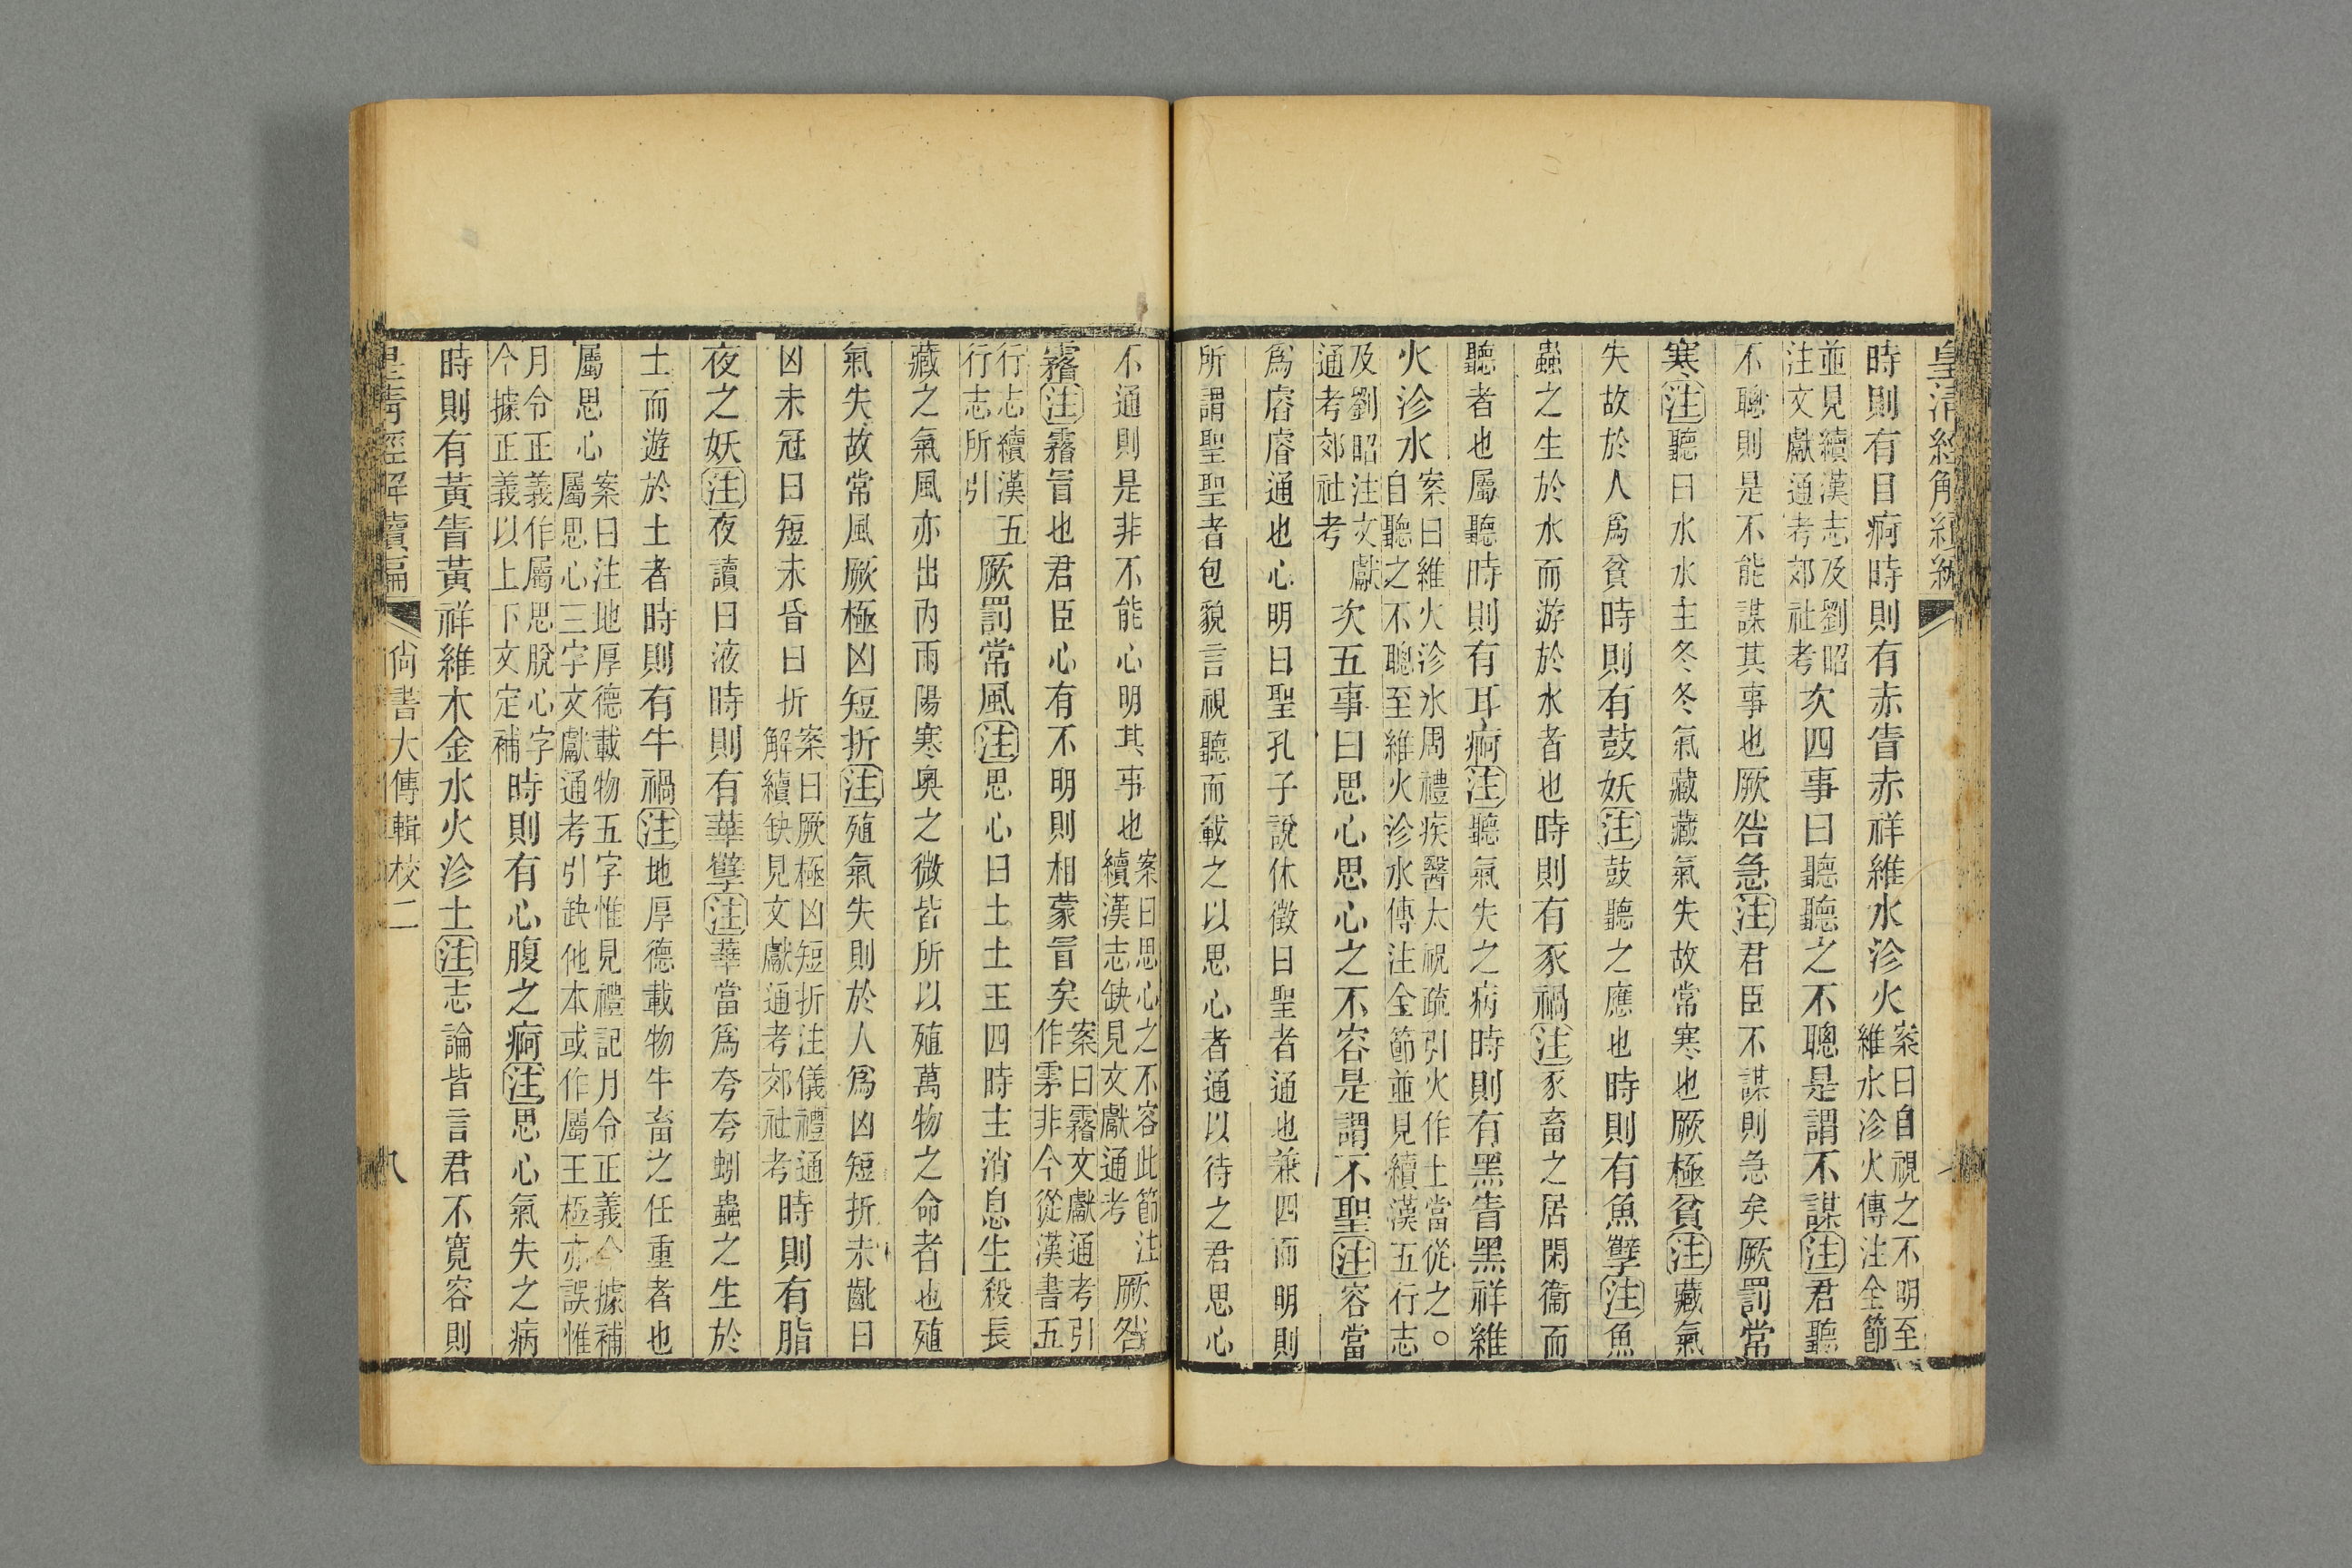 皇清經解續編
時則有目痾時則有赤眚赤祥維水沴火案曰自視之不明至維水沴火傳注全節
並見續漢志及劉昭注文獻通考郊社考次四事曰聽聽之不聰是謂不謀注君聽
不聰則是不能謀其事也厥咎急注君臣不謀則急矣厥罰常
寒注聽曰水水主冬冬氣藏藏氣失故常寒也厥極貧注藏氣
失故於人爲貧時則有鼓妖注鼓聽之應也時則有魚孽注魚
蟲之生於水而游於水者也時則有豕禍注豕畜之居閑衞而
聽者也屬聽時則有耳痾注聽氣失之病時則有黑眚黑祥維
火沴水案曰維火沴水周禮疾醫太祝疏引火作土當從之○自聽之不聰至維火沴水傳注全節並見續漢五行志
及劉昭注文獻通考郊社考次五事曰思心思心之不容是謂不聖注容當
爲睿睿通也心明曰聖孔子說休徵曰聖者通也兼四而明則
所謂聖聖者包貌言視聽而載之以思心者通以待之君思心
不通則是非不能心明其事也案曰思心之不容此節注續漢志缺見文獻通考厥咎
霿注霿冒也君臣心有不明則相蒙冒矣案曰霿文獻通考引作雺非今從漢書五
行志續漢五行志所引厥罰常風注思心曰土土王四時主消息生殺長
藏之氣風亦出內雨陽寒奧之微皆所以殖萬物之命者也殖
氣失故常風厥極凶短折注殖氣失則於人爲凶短折未齔曰
凶未冠曰短未昏曰折案曰厥極凶短折注儀禮通解續缺見文獻通考郊社考時則有脂
夜之妖注夜讀曰液時則有華孽注華當爲夸夸蚓蟲之生於
土而遊於土者時則有牛禍注地厚德載物牛畜之任重者也
屬思心案曰注地厚德載物五字惟見禮記月令正義今據補屬思心三字文獻通考引缺他本或作屬王極亦誤惟
月令正義作屬思脫心字今據正義以上下文定補時則有心腹之痾注思心氣失之病
時則有黃眚黃祥維木金水火沴土注志論皆言君不寬容則
皇清經解續編
尙書大傳輯校二
八